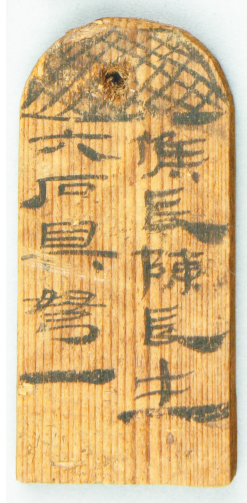 候長陳長生
六石具弩一